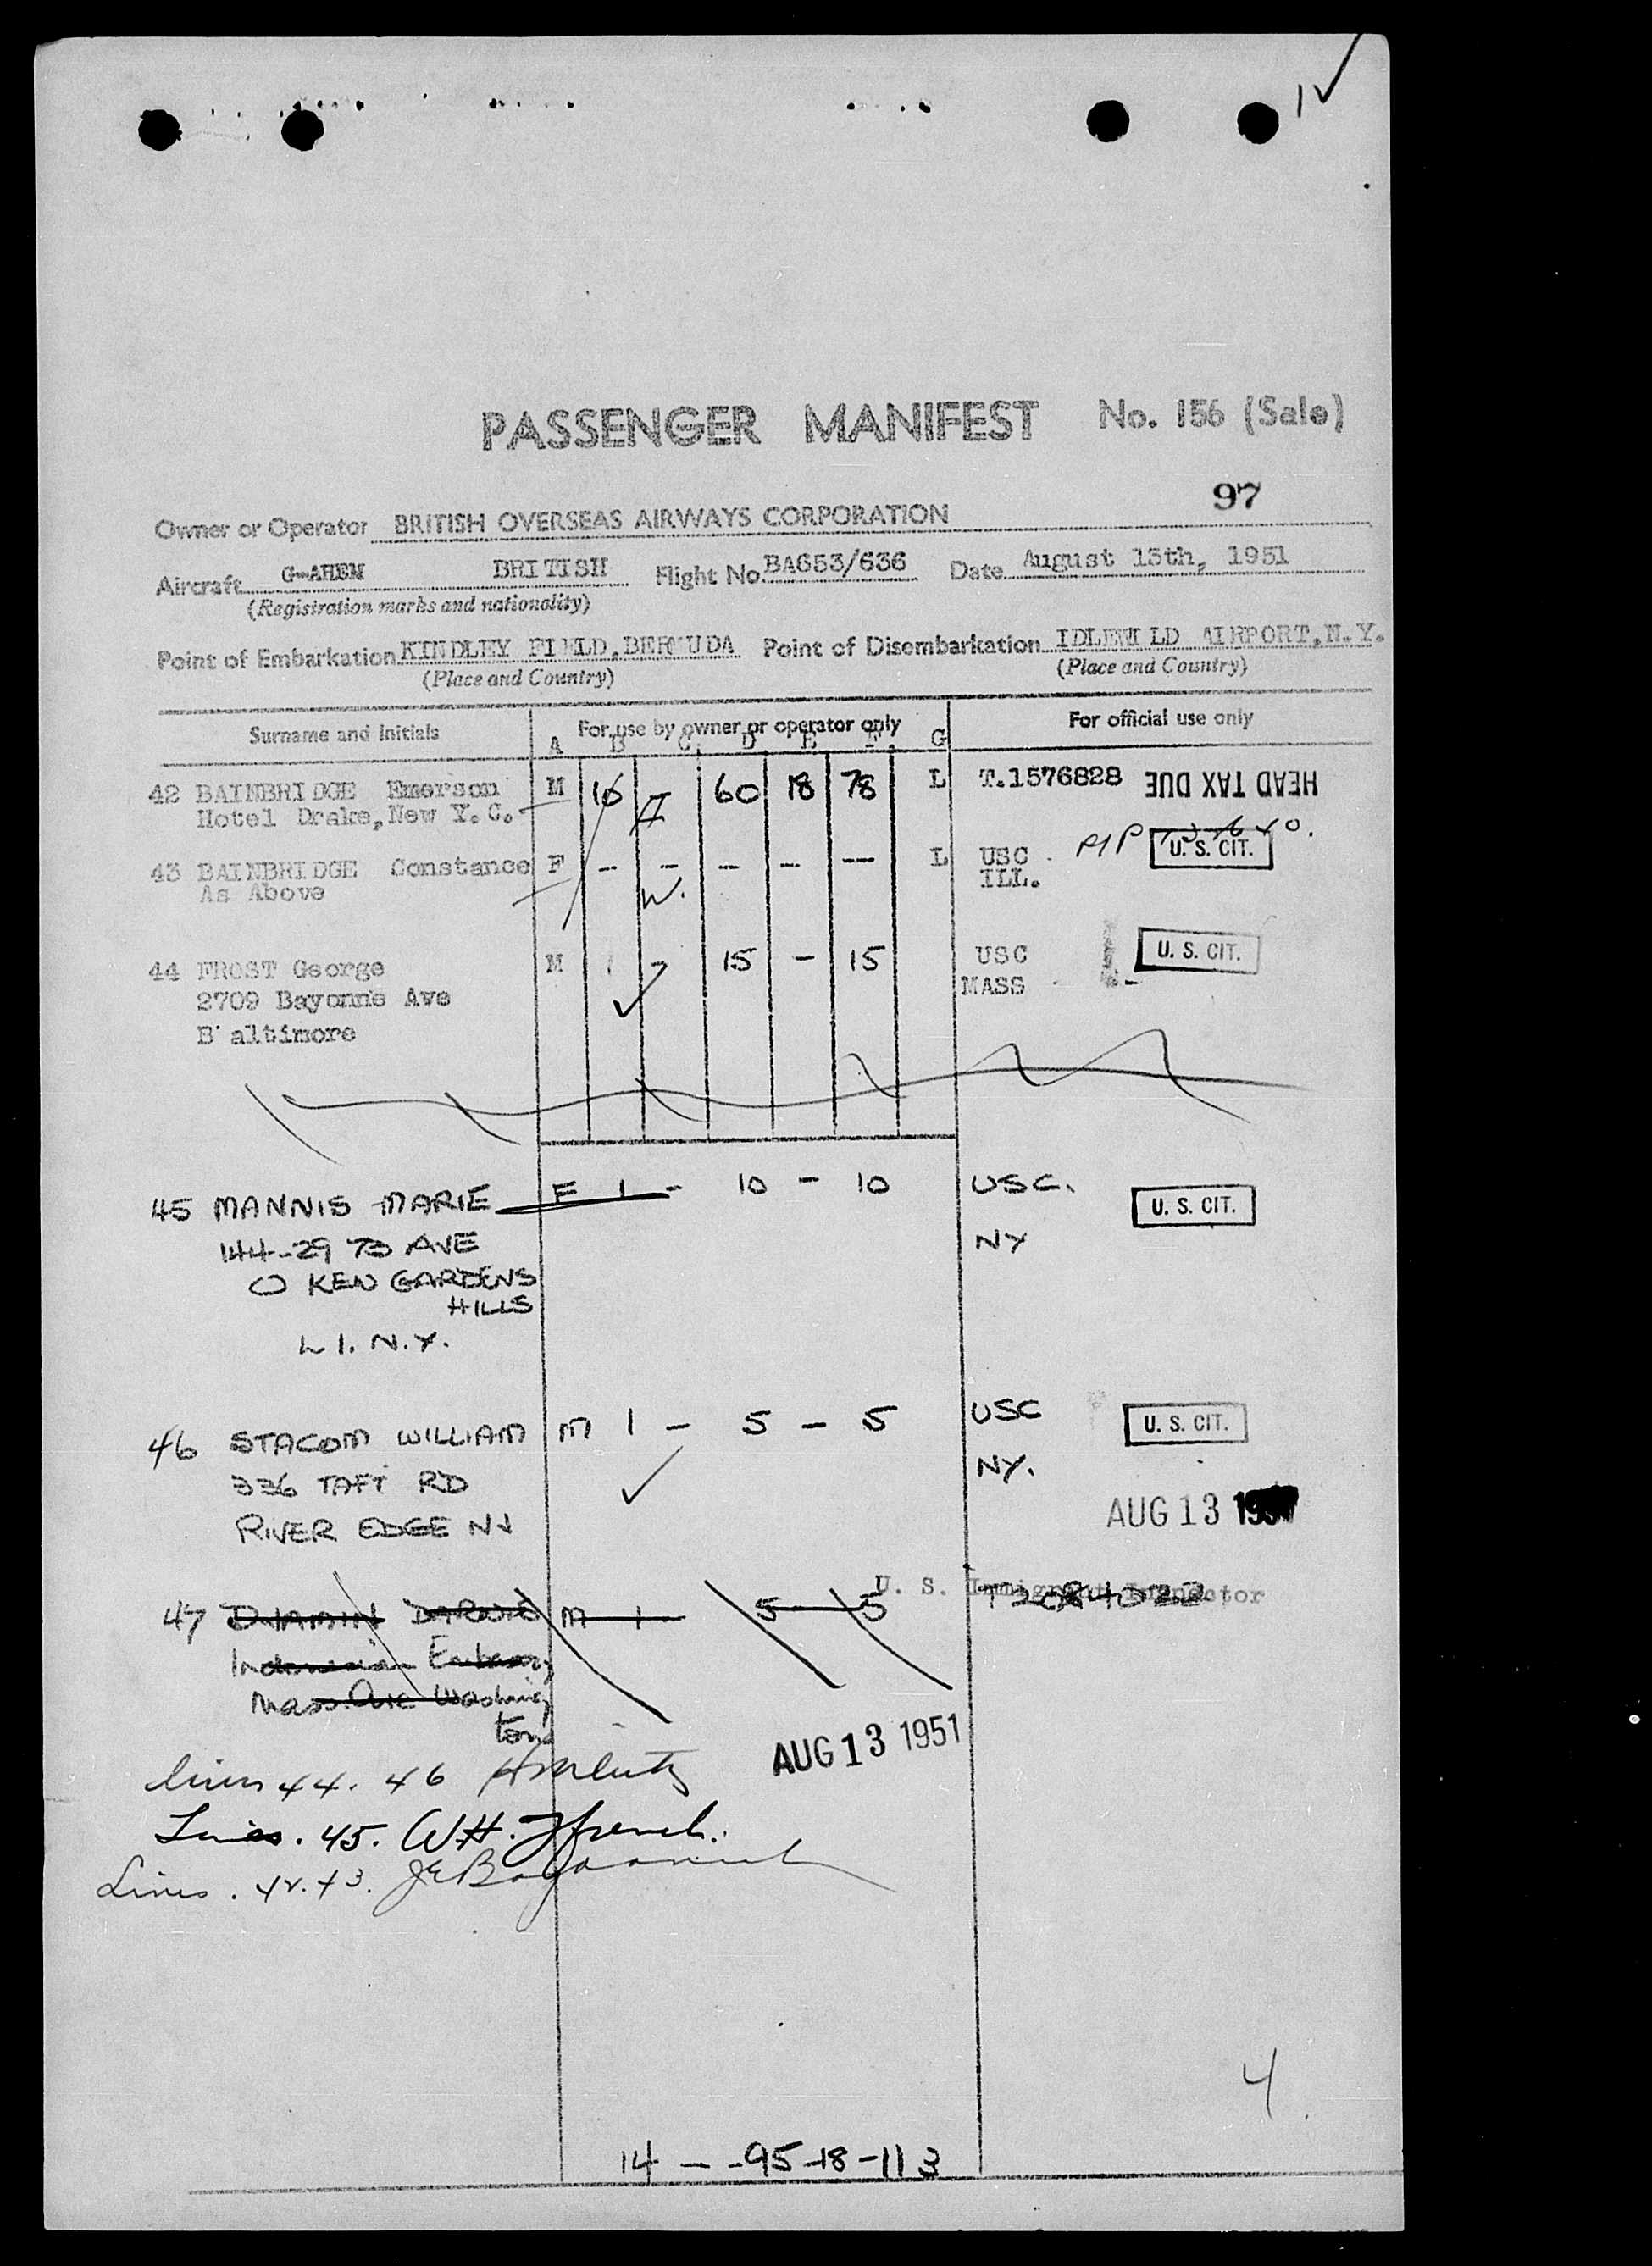 1✓
PASSENGER MANIFEST No. 156 (Sale)
97
Owner or Operator BRITISH OVERSEAS AIRWAYS CORPORATION
Aircraft G-AHEM BRITISH Flight No. BA653/636 Date August 13th, 1951
(Registration marks and nationality)
Point of Embarkation KINDLEY FIELD, BERMUDA Point of Disembarkation IDLEWILD AIRPORT, N.Y.
(Place and Country) (Place and Country)
Surname and Initials For use by owner or operator only For official use only
A B C D E F G
42 BAINBRIDGE Emerson M 16 60 18 78 L T.1576828 HEAD TAX DUE
Hotel Drake, New Y.C.
43 BAINBRIDGE Constance F -- - - - -- L USC U. S. CIT.
As Above W. ILL.
44 FROST George M 1 - 15 - 15 USC U. S. CIT.
2709 Bayonne Ave MASS
B altimore
45 MANNIS MARIE F 1 - 10 - 10 USC. U. S. CIT.
144-29 73 AVE NY
KEW GARDENS
HILLS
L I. N.Y.
46 STACOM WILLIAM M 1 - 5 - 5 USC U. S. CIT.
336 TAFT RD NY.
RIVER EDGE NJ AUG 13 1951
U. S. Immigrant Inspector
47 M 1 - 5 - 5
Indonesian Embassy
Mass Ave Washing
ton
AUG 13 1951
lines 44. 46
Lines. 45. W.H. Ffrench.
Lines. 42. 43.
4
14 - - 95-18-113